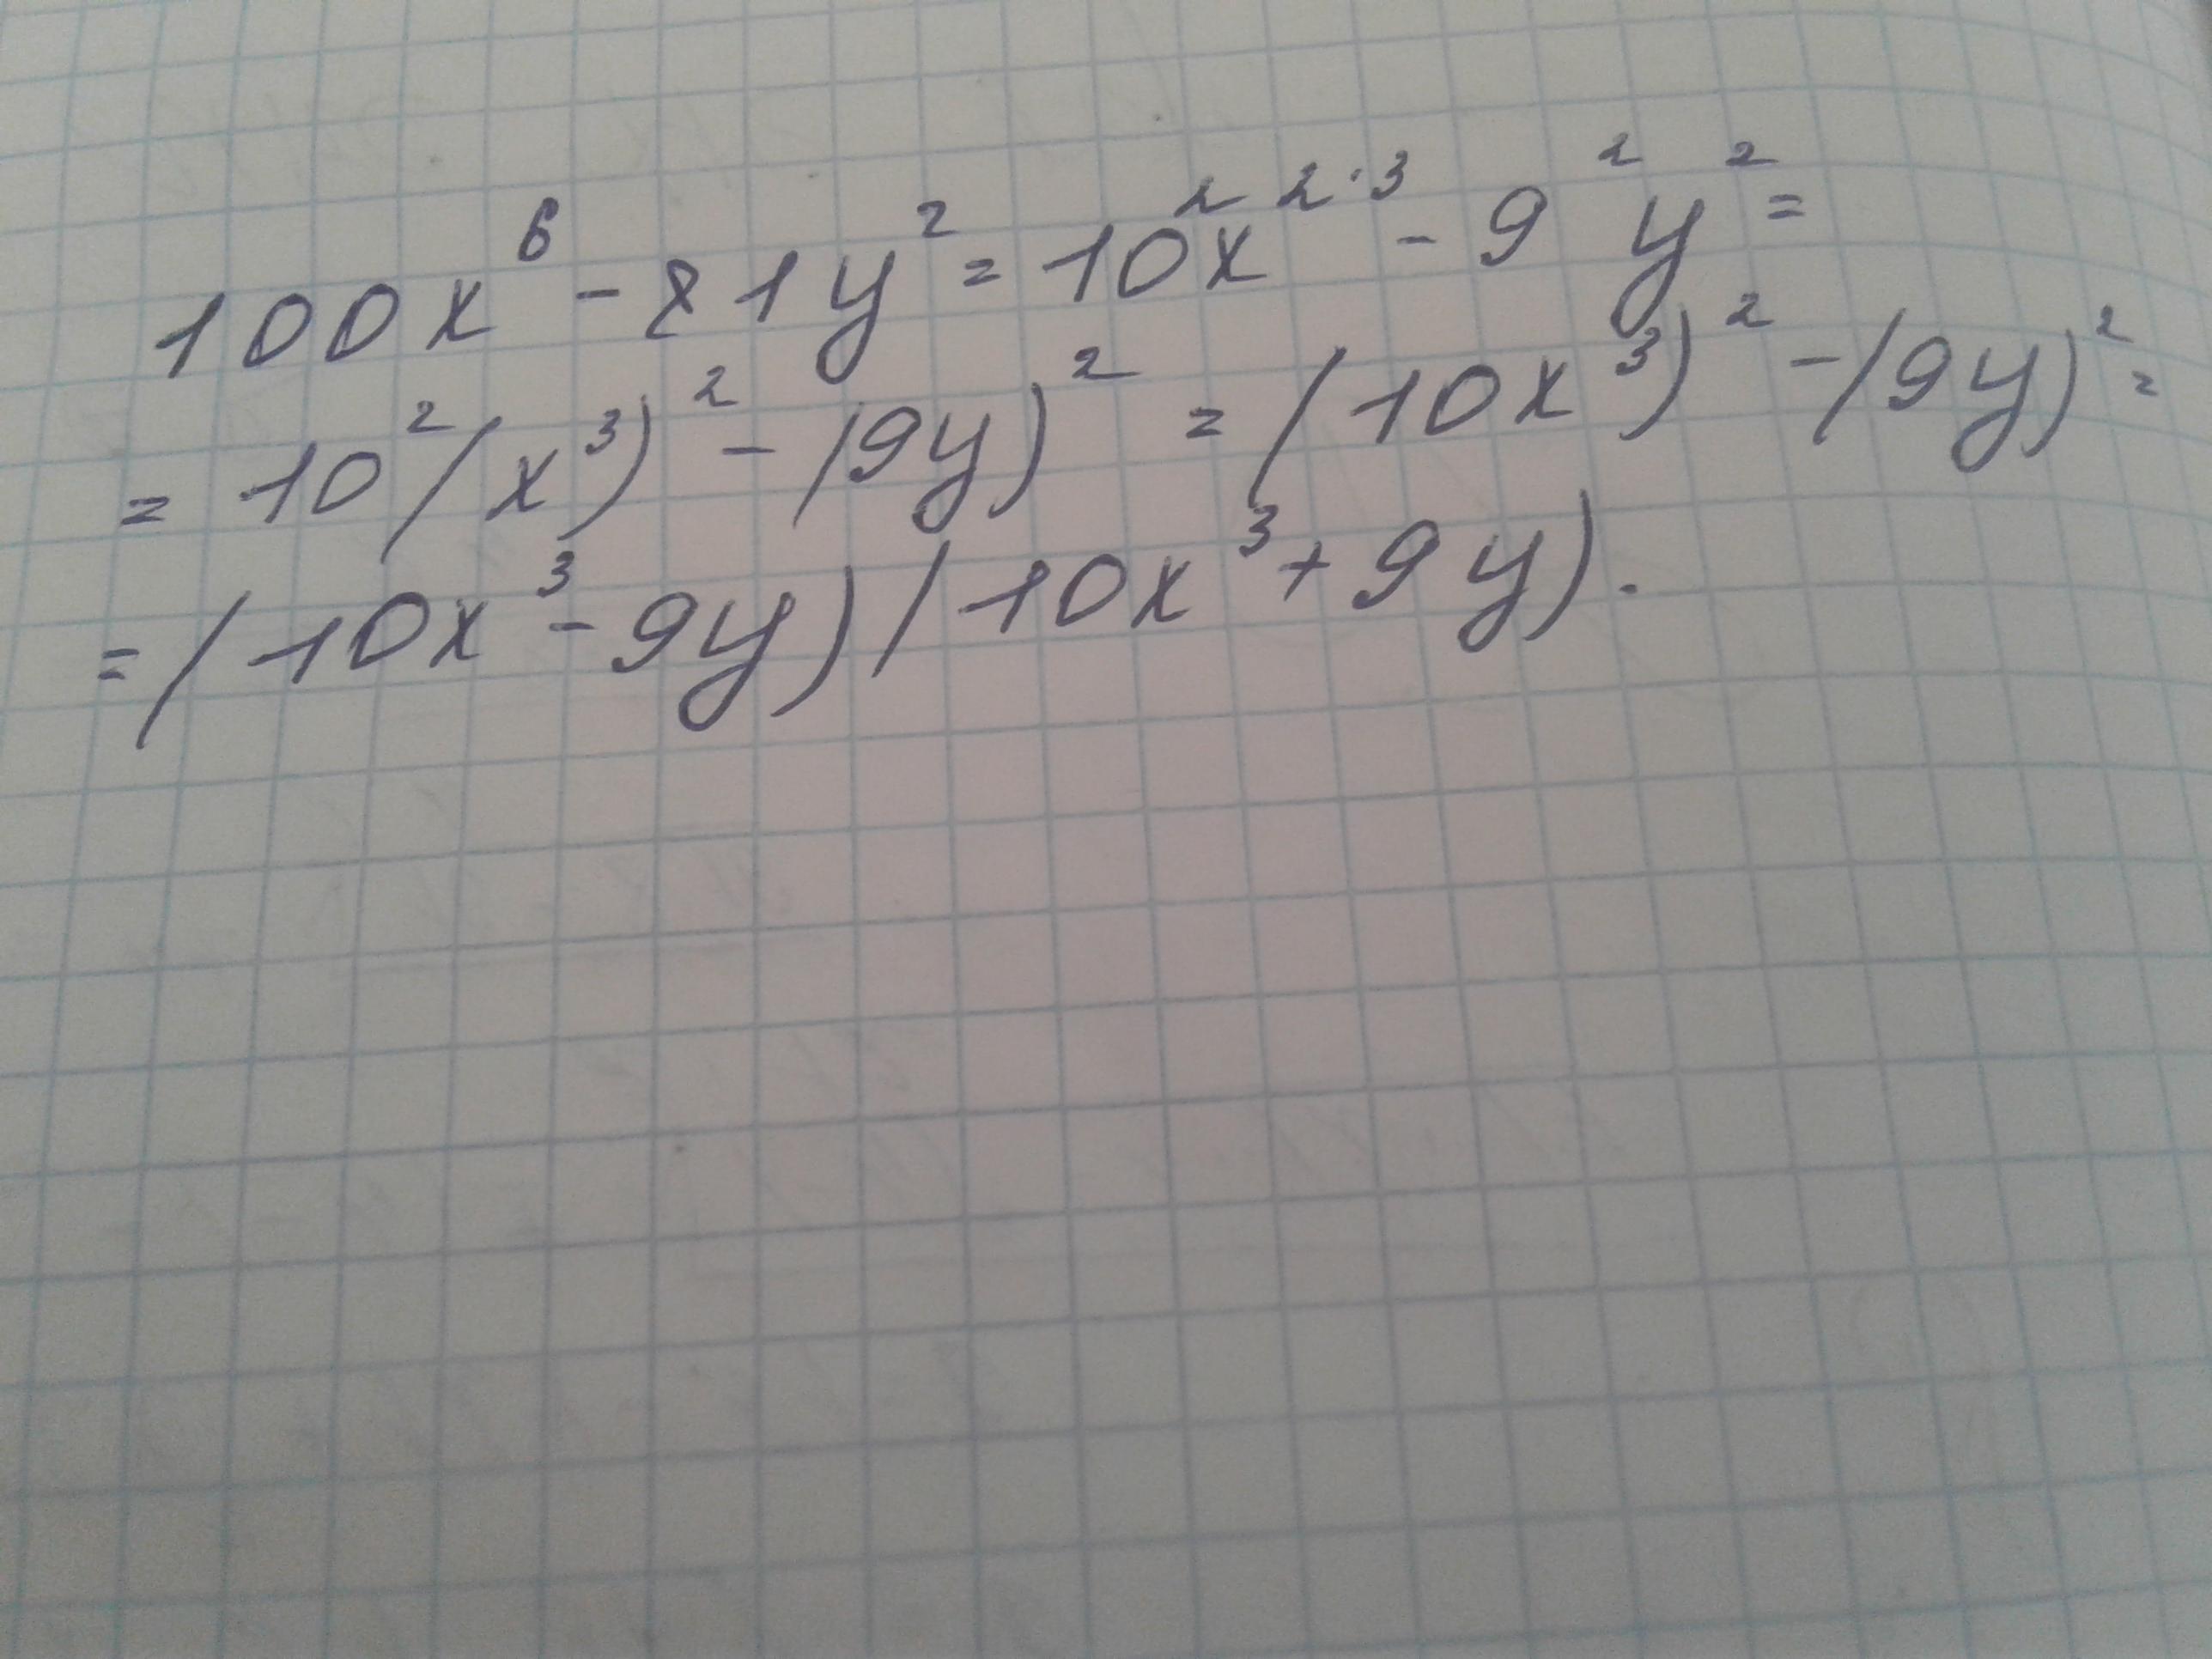 100x⁶ - 81y² = 10²x²·³ - 9²y² =
= 10²(x³)² - (9y)² = (10x³)² - (9y)² =
= (10x³ - 9y)(10x³ + 9y).